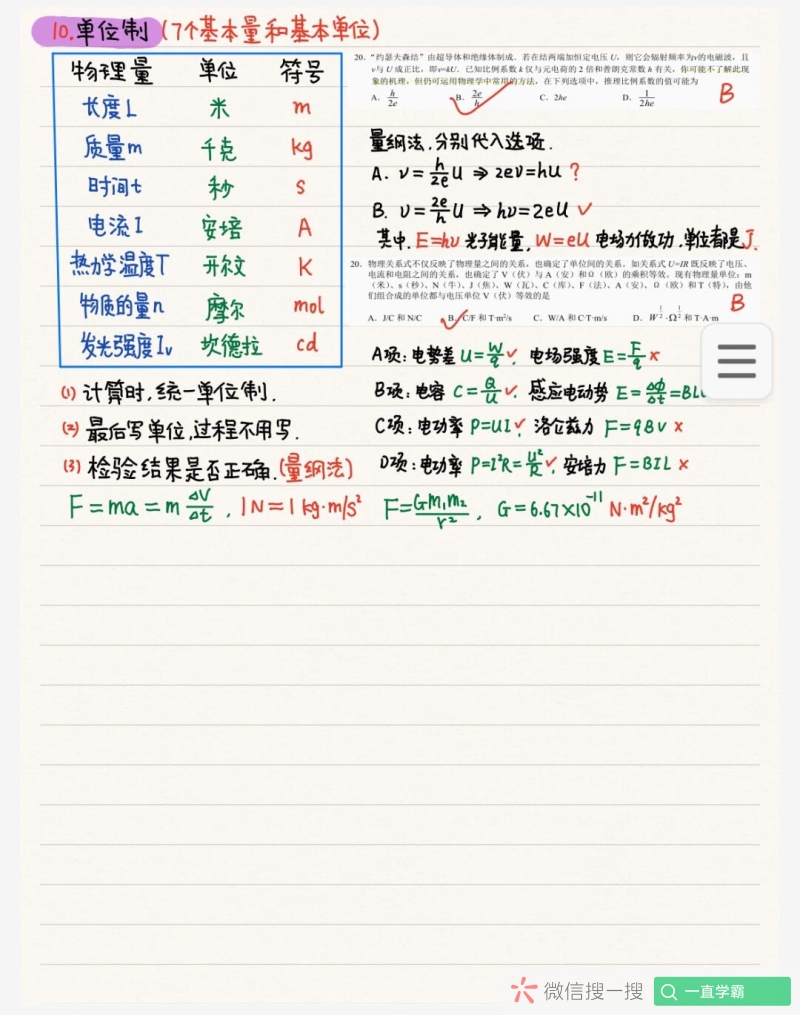 10.单位制(7个基本量和基本单位)
物理量 单位 符号
长度L 米 m
质量m 千克 kg
时间t 秒 s
电流I 安培 A
热力学温度T 开尔文 K
物质的量n 摩尔 mol
发光强度Iv 坎德拉 cd
(1) 计算时,统一单位制.
(2) 最后写单位,过程不用写.
(3) 检验结果是否正确.(量纲法)
F=ma=m ΔV/Δt , 1N=1kg·m/s²
20.“约瑟夫森结”由超导体和绝缘体制成。若在结两端加恒定电压 U,则它会辐射频率为ν的电磁波,且
ν与 U 成正比,即ν=kU。已知比例系数 k 仅与元电荷的 2 倍和普朗克常数 h 有关,你可能不了解此现
象的机理,但仍可运用物理学中常用的方法,在下列选项中,推理比例系数的值可能为
A. h/2e B. 2e/h C. 2he D. 1/2he
B
量纲法,分别代入选项.
A. ν=h/2e U ⇒ 2eν=hU ?
B. ν=2e/h U ⇒ hν=2eU ✓
其中, E=hν 光子能量, W=eU 电场力做功,单位都是J.
20. 物理关系式不仅反映了物理量之间的关系,也确定了单位间的关系。如关系式 U=IR 既反映了电压、
电流和电阻之间的关系,也确定了 V(伏)与 A(安)和Ω(欧)的乘积等效。现有物理量单位:m
(米)、s(秒)、N(牛)、J(焦)、W(瓦)、C(库)、F(法)、A(安)、Ω(欧)和 T(特),由他
们组合成的单位都与电压单位 V(伏)等效的是
A. J/C 和 N/C B. C/F 和 T·m²/s C. W/A 和 C·T·m/s D. W^1/2·Ω^1/2 和 T·A·m
B
A项: 电势差 U=W/q ✓. 电场强度 E=F/q ×
B项: 电容 C=Q/U ✓. 感应电动势 E=Δφ/Δt=BL
C项: 电功率 P=UI ✓. 洛仑兹力 F=qBv ×
D项: 电功率 P=I²R=U²/R ✓. 安培力 F=BIL ×
F=Gm₁m₂/r² , G=6.67×10⁻¹¹ N·m²/kg²
微信搜一搜 一直学霸